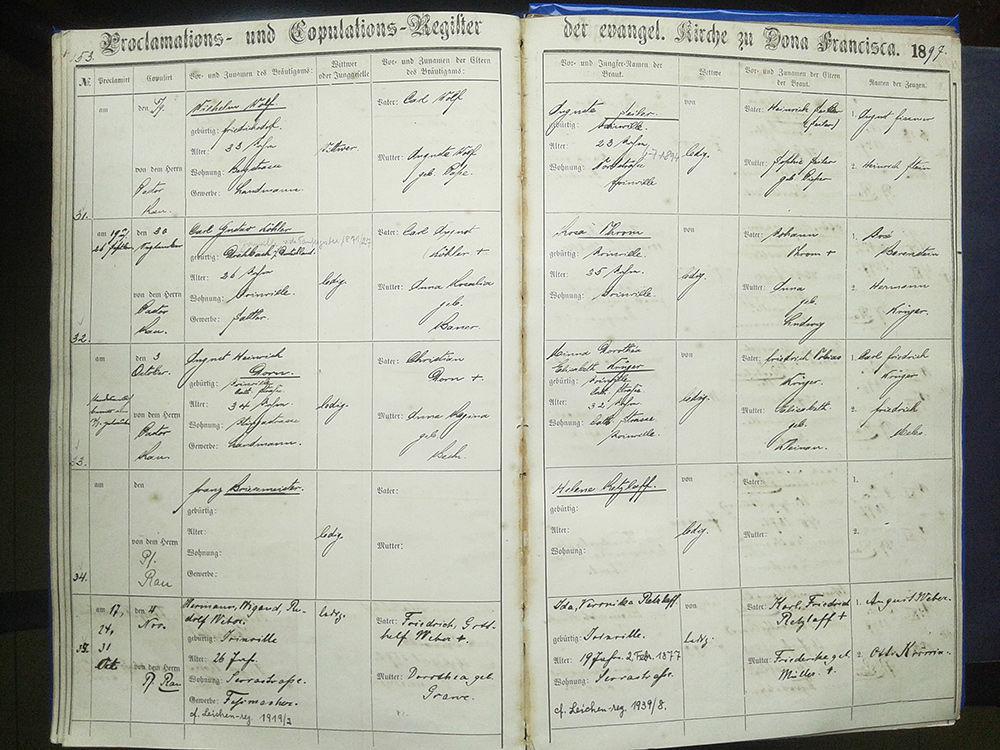 Proclamations- und Copulations-Register
53.
№
Proclamirt
Copulirt
Vor- und Zunamen des Bräutigams:
Wittwer
oder Junggeselle
Vor- und Zunamen der Eltern
des Bräutigams:
am
den
Wilhelm Wolf.
gebürtig: Friedrichsdorf.
Alter: 33 Jahr
Wohnung:
Gewerbe: Landmann.
von dem Herrn
Pastor
Rau.
Wittwer
Vater: Carl Wolf
Mutter: Auguste Wolf
geb.
31.
am 19
26 September
den 30
September
Carl Gustav Köhler
gebürtig:
Alter: 26 Jahr.
Wohnung: Joinville.
Gewerbe: Sattler.
von dem Herrn
Pastor
Rau.
ledig.
Vater: Carl August
Köhler +
Mutter: Anna Rosalia
geb.
Bauer.
32.
am
den 3
October.
August Heinrich
Dorn.
gebürtig: Joinville
Cath. Straße
Alter: 34 Jahr
Wohnung:
Gewerbe: Landmann.
von dem Herrn
Pastor
Rau.
ledig.
Vater: Christian
Dorn +.
Mutter: Anna Regina
geb.
33.
am
den
Franz Brüsemeister.
gebürtig:
Alter:
Wohnung:
Gewerbe:
von dem Herrn
Pf.
Rau
ledig.
Vater:
Mutter:
34.
am 17,
24,
31
Okt
den 4
Nov.
Hermann, Wigand, Ru-
dolf Weber.
gebürtig: Joinville
Alter: 26 Jahr.
Wohnung: Serrastraße.
Gewerbe:
cf. Leichen-reg. 1919/2
von dem Herrn
Pf. Rau
ledig.
Vater: Friedrich, Gott-
helf Weber +.
Mutter: Dorothea geb.
Grawe.
35.
der evangel. Kirche zu Dona Francisca. 1897.
Vor- und Jungfer-Namen der
Braut.
Wittwe
Vor- und Zunamen der Eltern
der Braut.
Namen der Zeugen.
Auguste Seiler.
gebürtig: Joinville.
Alter: 23 Jahr
1-7-1894
Wohnung: Nordstraße
Joinville
von
ledig.
Vater: Heinrich Seiler
(Seiler)
Mutter: Sophie Seiler
geb. Pieper
1. August
2. Heinrich Stein
Rosa Throm
gebürtig: Joinville.
Alter: 25 Jahr.
Wohnung: Joinville.
von
ledig.
Vater: Johann
Throm +
Mutter: Anna
geb.
Ludwig
1. José
Berenstein
2. Hermann
Krüger.
Minna Dorothea
Elisabeth Krüger
gebürtig: Joinville
Cath. Straße
Alter: 32 Jahr
Wohnung: Cath. Strasse
Joinville.
von
ledig.
Vater: Friedrich Tobias
Krüger.
Mutter: Elisabeth
geb.
1. Carl Friedrich
Krüger
2. Friedrich
Helene Retzlaff.
gebürtig:
Alter:
Wohnung:
von
ledig.
Vater:
Mutter:
1.
2.
Ida, Veronika Retzlaff.
gebürtig: Joinville.
Alter: 19 Jahr. 2 Febr. 1877
Wohnung: Serrastraße.
cf. Leichen-reg. 1939/8.
von
ledig.
Vater: Karl, Friedrich
Retzlaff +
Mutter: Friederike geb.
Müller. +.
1. August Weber.
2. Otto